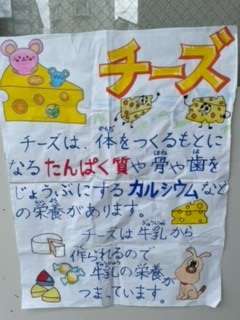 チーズ
チーズは、体をつくるもとに
なるたんぱく質や骨や歯を
じょうぶにするカルシウムなど
の栄養があります。
チーズは牛乳から
作られるので
牛乳の栄養が
つまっています。